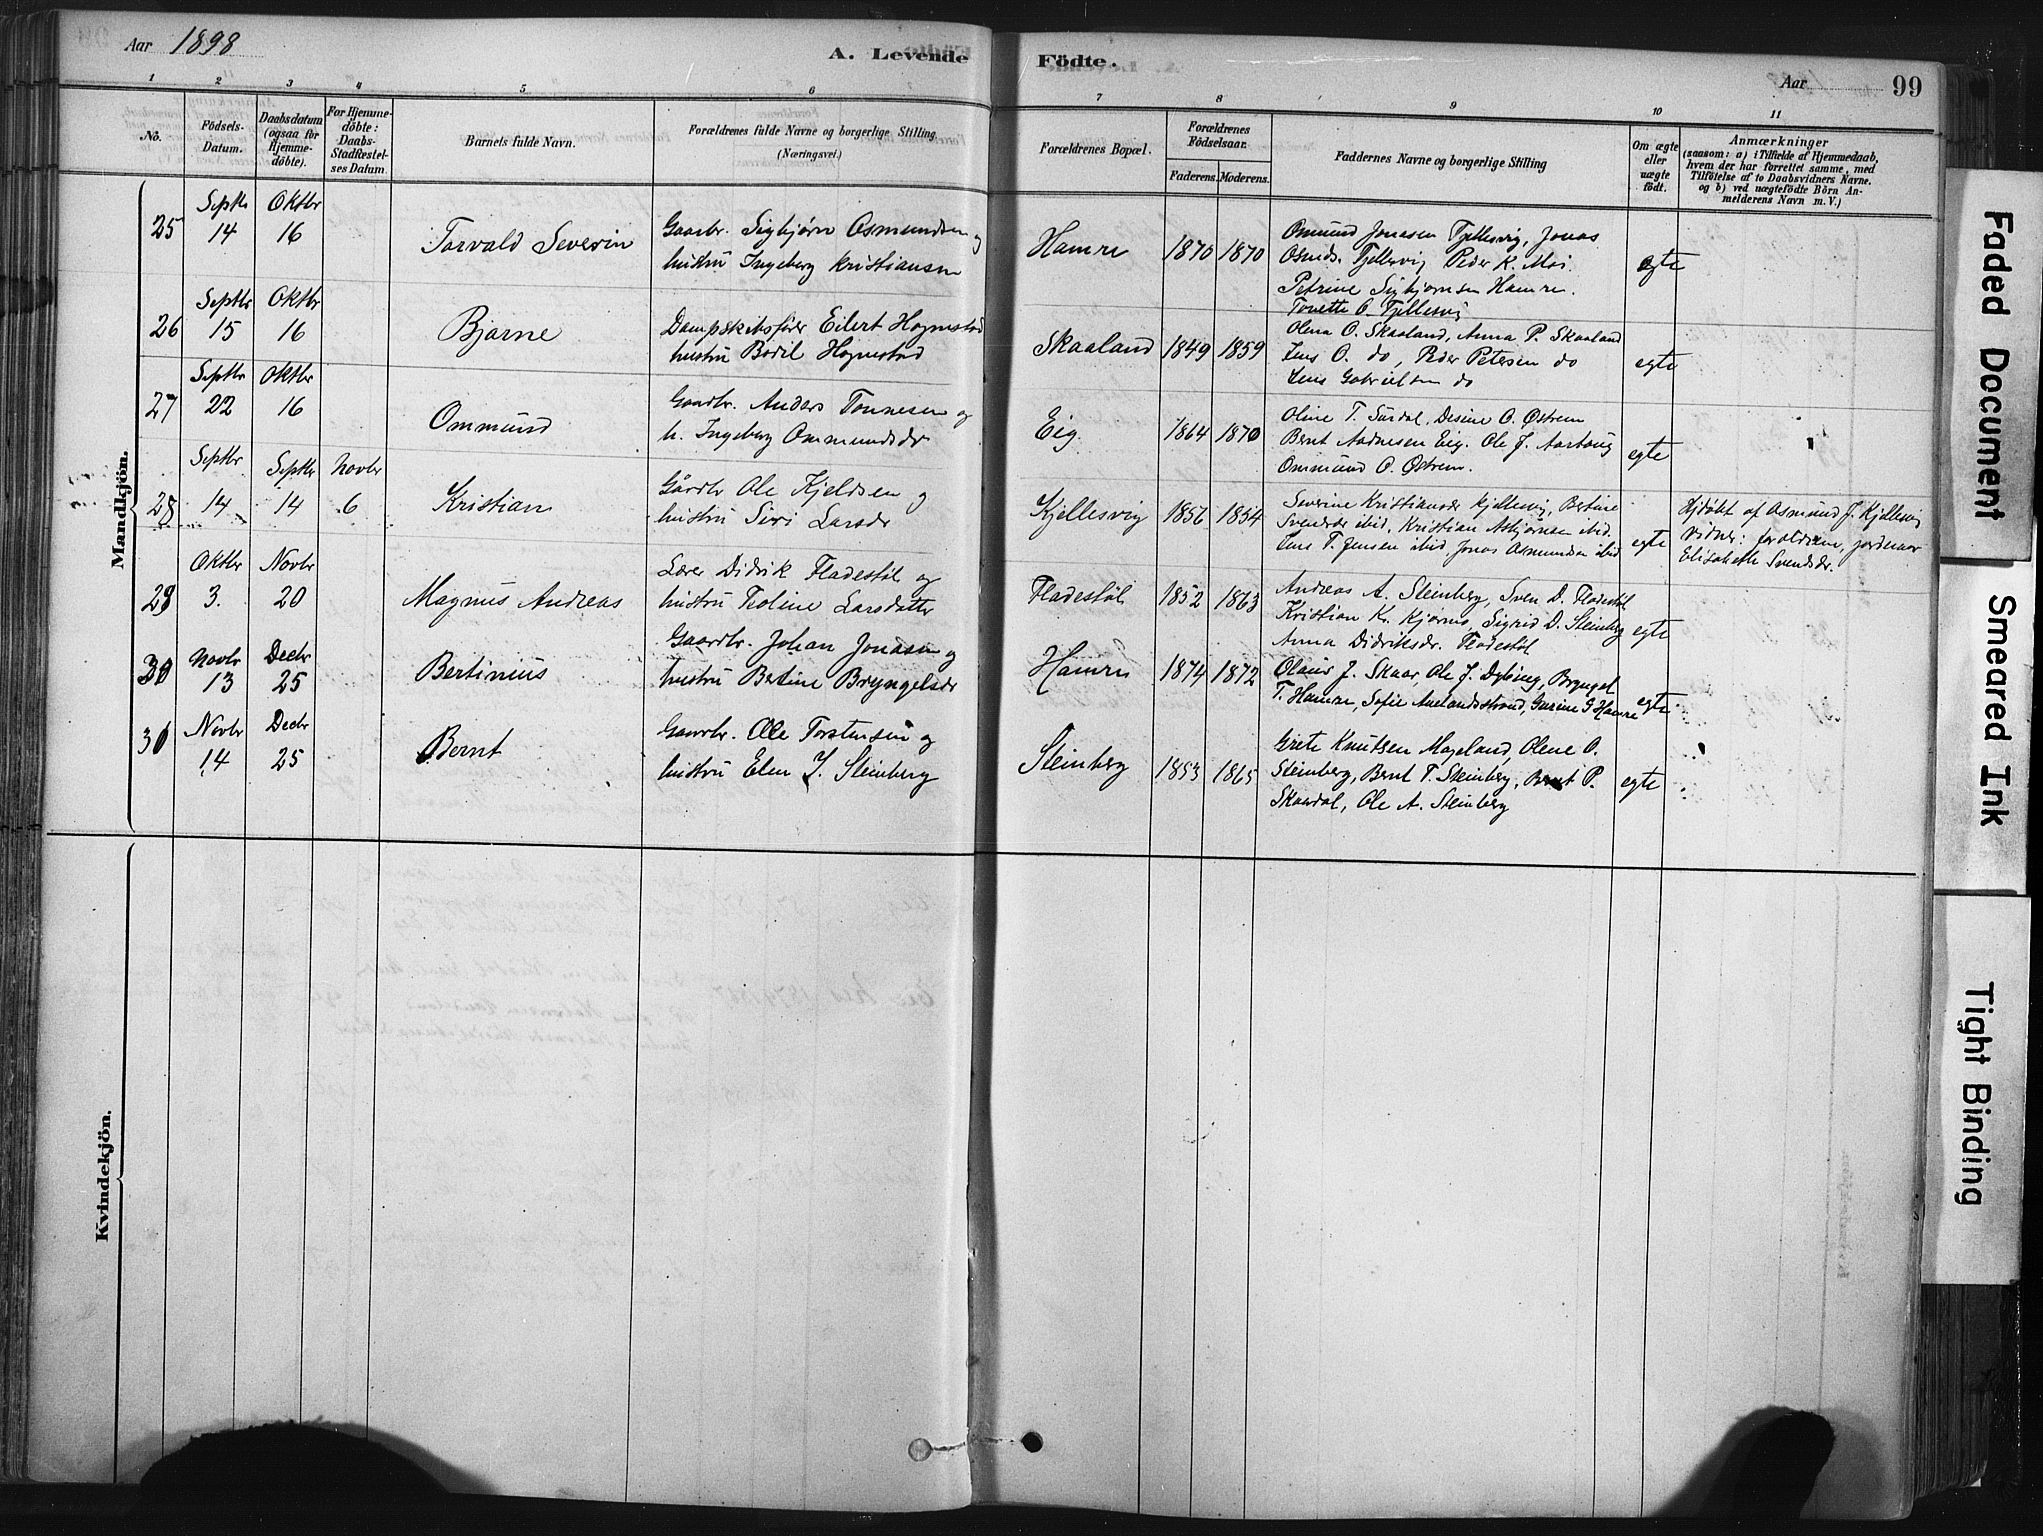 Aar 1898
A. Levende Födte.
Aar 99
1 2 3 4 5 6 7 8 9 10 11
No.
Födsels-Datum.
Daabsdatum (ogsaa for Hjemme-döbte).
For Hjemme-döbte: Daabs-Stadfæstel-ses Datum.
Barnets fulde Navn.
Forældrenes fulde Navne og borgerlige Stilling
(Næringsvei.)
Forældrenes Bopæl.
Forældrenes Födselsaar.
Faderens. Moderens.
Faddernes Navne og borgerlige Stilling
Om ægte eller uægte födt.
Anmærkninger
(saasom: a) i Tilfælde af Hjemmedaab,
hvem der har forrettet samme, med
Tilföielse af to Daabsvidners Navne.
og b) ved uægtefödte Börn An-
melderens Navn m. V.)
Mandkjön.
25 Septbr 14 Oktbr 16 Torvald Severin
Gaardbr. Sigbjørn Osmundsen og
hustru Ingeborg Kristiansen
Hamre 1870 1870
Omund Jonasen Fjellesvig, Jonas
Osmds. Fjellesvig Peder K. Moi.
Petrine Sigbjørnsen Hamre.
Tonette O. Fjellesvig
egte
26 Septbr 15 Oktbr 16 Bjarne
Dampskibsfører Eilert Hognestad
hustru Bodil Hognestad
Skaaland 1849 1859
Olena O. Skaaland, Anna P. Skaaland
Jens O. do, Peder Petersen do
Jens Gabrielsen do
egte
27 Septbr 22 Oktbr 16 Ommund
Gaardbr. Anders Tønnesen og
h. Ingeborg Ommundsdr
Eig. 1864 1870
Oline T. Surdal, Desine O. Østrem
Bernt Aadnesen Eig. Ole J. Aarboug
Ommund O. Østrem.
egte
28 Septbr 14 Septbr 14 Novbr 6 Kristian
Gårdbr Ole Kjeldsen og
hustru Siri Larsdr
Kjellesvig 1856 1854
Severine Kristiansdr Kjellesvig, Bertine
Svendsdr ibid, Kristian Asbjørnsen ibid.
Jens T. Jensen ibid, Jonas Osmundsen ibid
egte
Hjdøbt af Osmund J. Kjellesvig
Vidner: forældrene, jordemor
Elisabeth Svendsdr.
29 Oktbr 3. Novbr 20 Magnus Andreas
Lærer Didrik Fladestøl og
hustru Teoline Larsdatter
Fladestøl 1852 1863
Andreas A. Steinberg, Sven D. Fladestøl
Kristian K. Kjørnes, Sigrid D. Steinberg
Anna Didriksdr. Fladestøl
egte
30 Novbr 13 Decbr 25 Bertinius
Gaardbr. Johan Jonasen og
hustru Bertine Bryngelsdr
Hamre 1874 1872
Olaus J. Skaar, Ole J. Dybing, Bryngel
T. Hamre, Sofie Auelandsstrand, Gurine G Hamre
egte
31 Novbr 14 Decbr 25 Bernt
Gaardbr. Ole Torstensen og
hustru Elen J. Steinberg
Steinberg 1853 1865
Grete Knutsen Mageland, Olene O.
Steinberg, Bernt T. Steinberg, Bernt P.
Skaardal, Ole A. Steinberg
egte
Kvindekjön.
Faded Document
Smeared Ink
Tight Binding